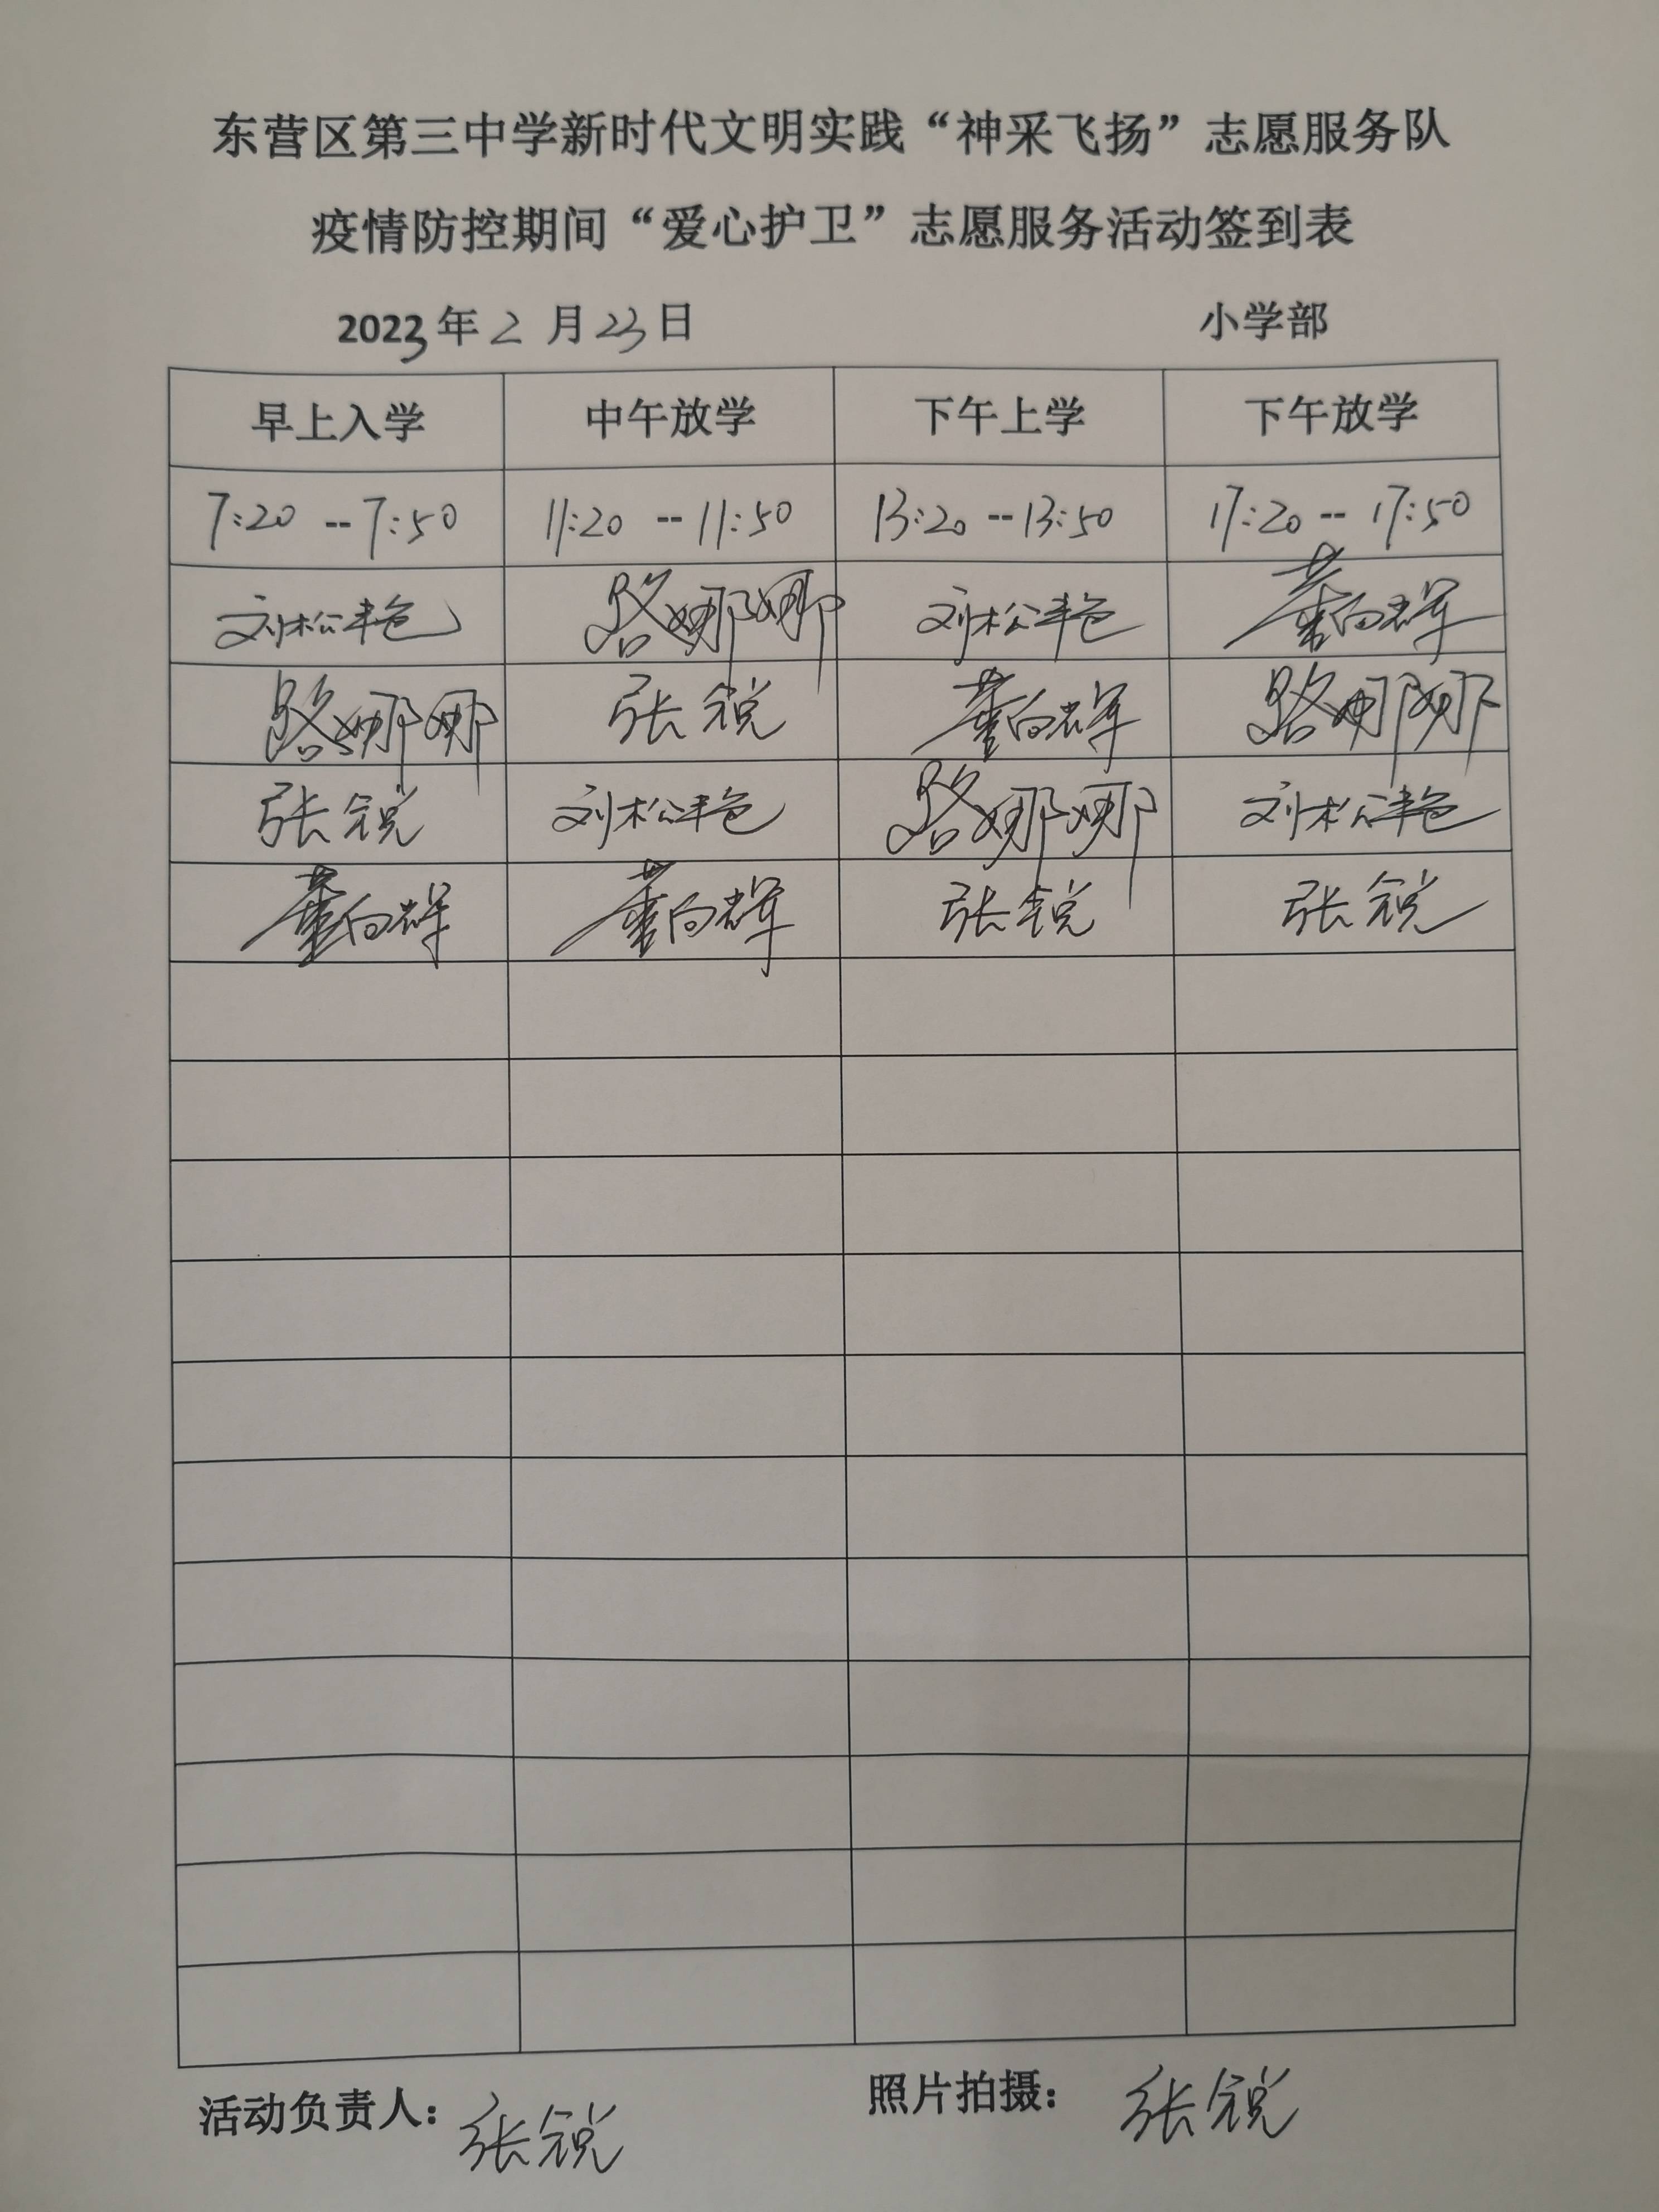 东营区第三中学新时代文明实践“神采飞扬”志愿服务队
疫情防控期间“爱心护卫”志愿服务活动签到表
2023年2月23日 小学部
早上入学 中午放学 下午上学 下午放学
7:20--7:50 11:20--11:50 13:20--13:50 17:20--17:50
刘松艳 路娜娜 刘松艳 董向辉
路娜娜 张锐 董向辉 路娜娜
张锐 刘松艳 路娜娜 刘松艳
董向辉 董向辉 张锐 张锐
活动负责人：张锐 照片拍摄：张锐